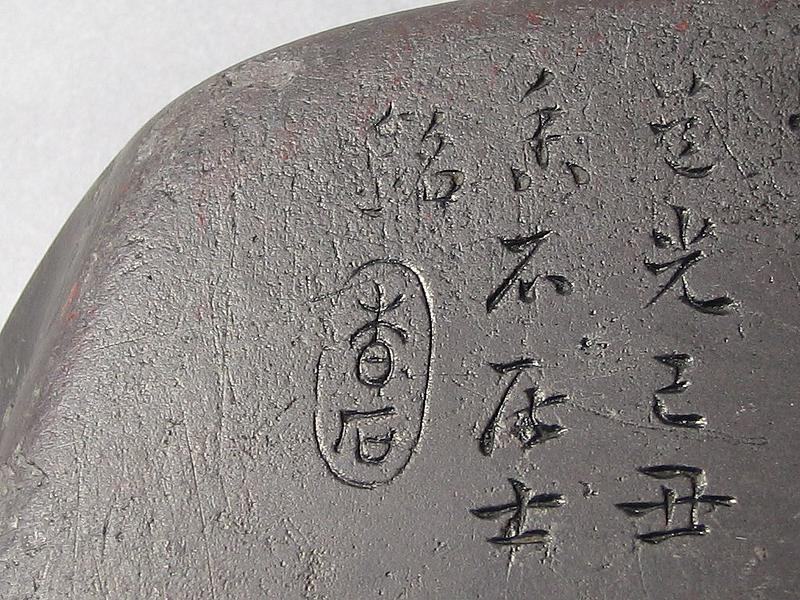 道光己丑
香石居士
銘
香石